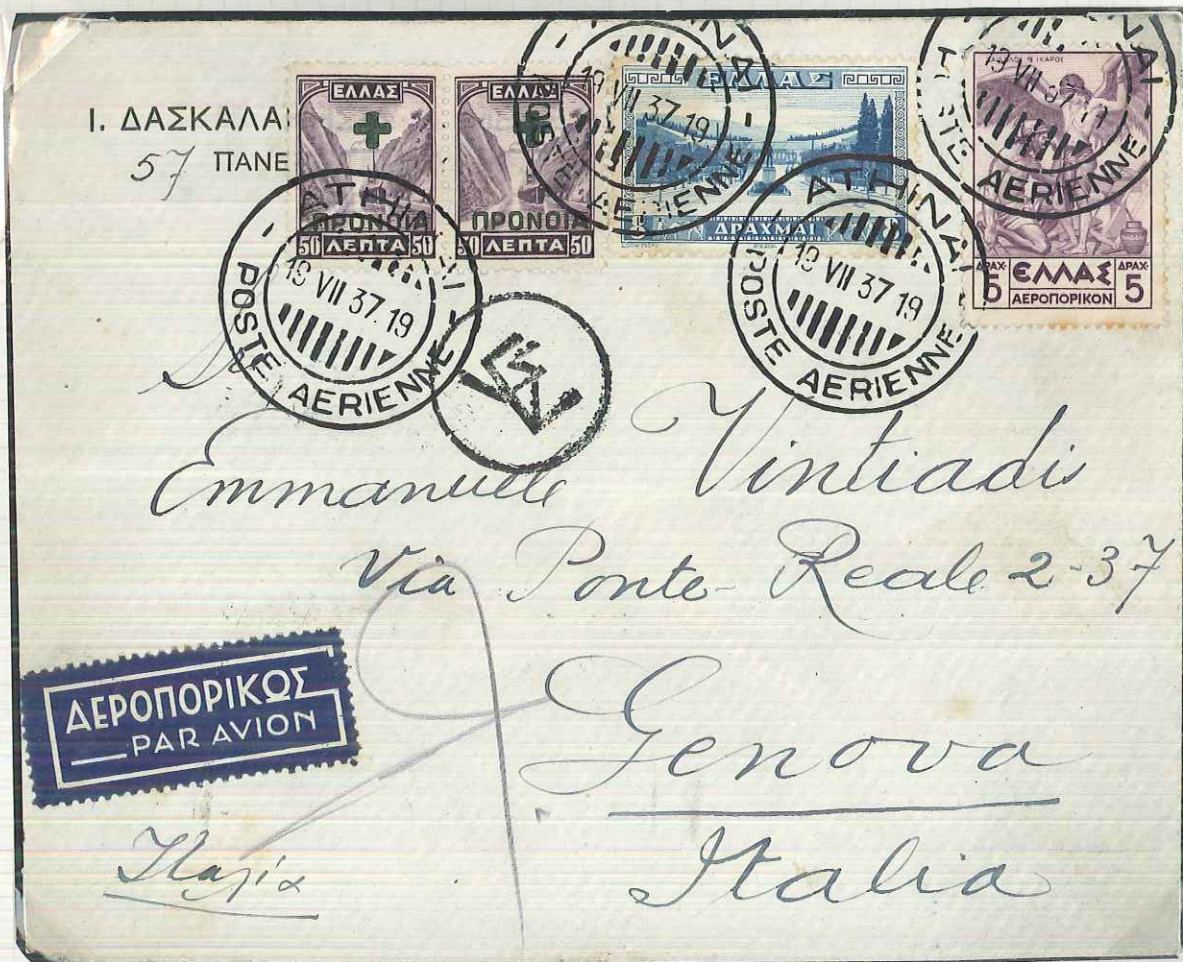 Ι. ΔΑΣΚΑΛΑ
57 ΠΑΝΕ
ΕΛΛΑΣ
ΠΡΟΝΟΙΑ
50 ΛΕΠΤΑ 50
ΕΛΛΑΣ
ΠΡΟΝΟΙΑ
50 ΛΕΠΤΑ 50
ΕΛΛΑΣ
8 ΔΡΑΧΜΑΙ 8
ΙΚΑΡΟΣ
ΔΡΑΧ. 5 ΕΛΛΑΣ ΔΡΑΧ. 5
ΑΕΡΟΠΟΡΙΚΟΝ
ATHINAI
19 VII 37.19
POSTE AERIENNE
ATHINAI
19 VII 37.19
POSTE AERIENNE
ATHINAI
19 VII 37.19
POSTE AERIENNE
ATHINAI
19 VII 37.19
POSTE AERIENNE
Emmanuele Vintiadis
Via Ponte-Reale 2-37
Genova
Italia
ΑΕΡΟΠΟΡΙΚΩΣ
PAR AVION
Ιταλία